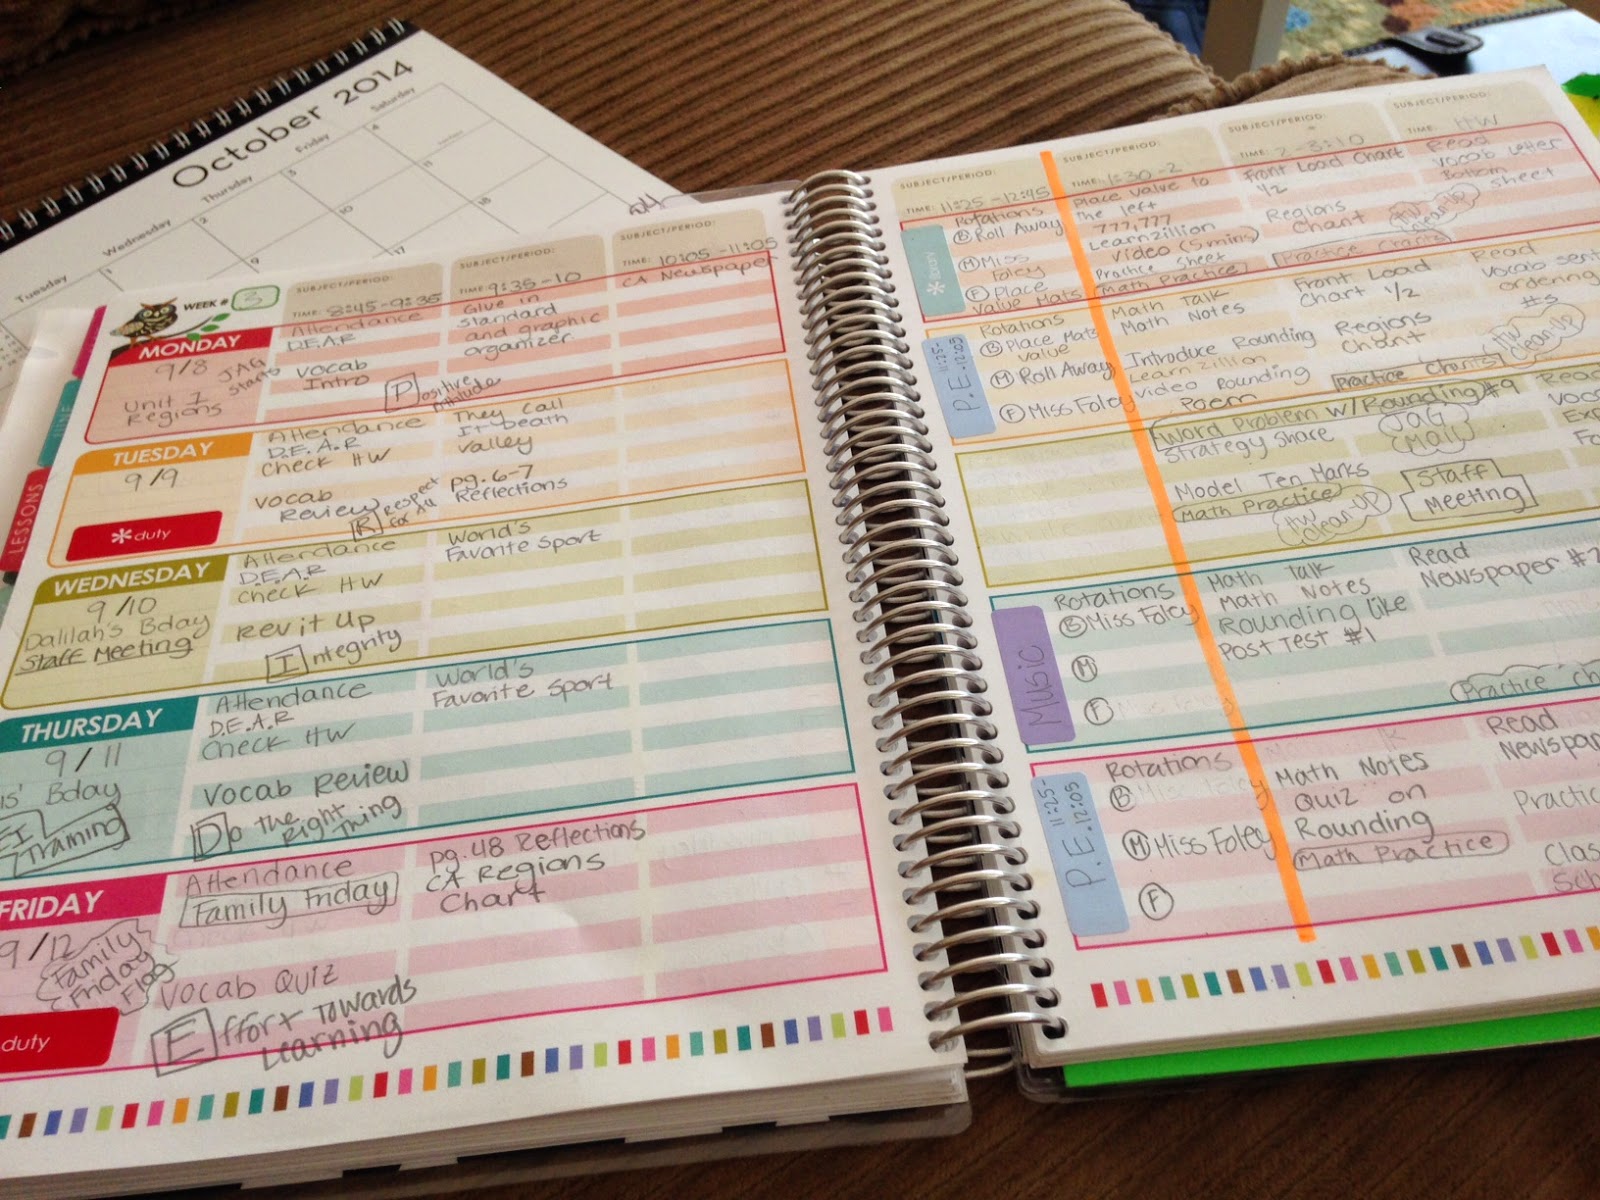 October 2014
Tuesday
Wednesday
Thursday
Friday
Saturday
1
2
3
4
9
10
11
17
18
LESSONS
JUNE
WEEK # 3
SUBJECT/PERIOD:
TIME: 8:45-9:35
SUBJECT/PERIOD:
TIME: 9:35-10
SUBJECT/PERIOD:
TIME: 10:05-11:05
MONDAY
9/8 JAG
starts
Unit 1
Regions
Attendance
D.E.A.R
Vocab
Intro
Positive
Attitude
Glue in
standard
and graphic
organizer
CA Newspaper
TUESDAY
9/9
*duty
Attendance
D.E.A.R
Check HW
Vocab
Review
Respect
for All
They Call
It Death
Valley
pg. 6-7
Reflections
WEDNESDAY
9/10
Dalilah's Bday
Staff Meeting
Attendance
D.E.A.R
Check HW
Rev it Up
Integrity
World's
Favorite Sport
THURSDAY
9/11
Bday
Training
Attendance
D.E.A.R
Check HW
Vocab Review
Do the
Right
Thing
World's
Favorite Sport
FRIDAY
9/12
Family
Friday
Flag
duty
Attendance
Family Friday
Vocab Quiz
Effort Towards
Learning
pg. 48 Reflections
CA Regions
Chart
SUBJECT/PERIOD:
TIME: 11:25-12:45
SUBJECT/PERIOD:
TIME: 1:30-2
SUBJECT/PERIOD:
TIME: 2-3:10
SUBJECT/PERIOD:
TIME: HW
Rotations
B Roll Away
M Miss
Foley
F Place
Value Mats
Place value to
The left
777,777
Learnzillion
Video (5 mins)
Practice Sheet
Math Practice
Front Load Chart
1/2
Regions
Chart
HW
Clean-Up
Practice Charts
Read
Vocab Letter
Bottom
sheet
P.E. 11:25-
12:05
Rotations
B Place Mats
Value
M Roll Away
F Miss Foley
Math Talk
Math Notes
Introduce Rounding
Learnzillion
Video Rounding
Poem
Front Load
Chart 1/2
Regions
Chart
HW
Clean-Up
Practice Charts
Read
Vocab sent
ordering
#s
Word Problem w/Rounding #9
Strategy share
Model Ten Marks
Math Practice
HW
Clean-Up
JAG
(Mail)
Staff
Meeting
Music
Rotations
B Miss Foley
M
F
Math Talk
Math Notes
Rounding like
Post Test #1
Read
Newspaper #2
P.E. 11:25-
12:05
Rotations
B Miss Foley
M Miss Foley
F
Math Notes
Quiz on
Rounding
Math Practice
Read